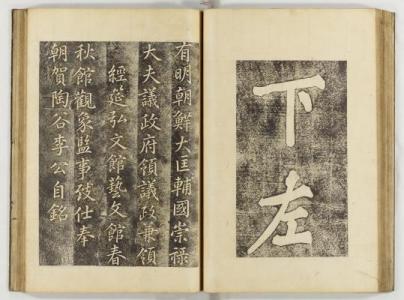 下左
有明朝鮮大匡輔國崇祿
大夫議政府領議政兼領
經筵弘文館藝文館春
秋館觀象監事致仕奉
朝賀陶谷李公自銘